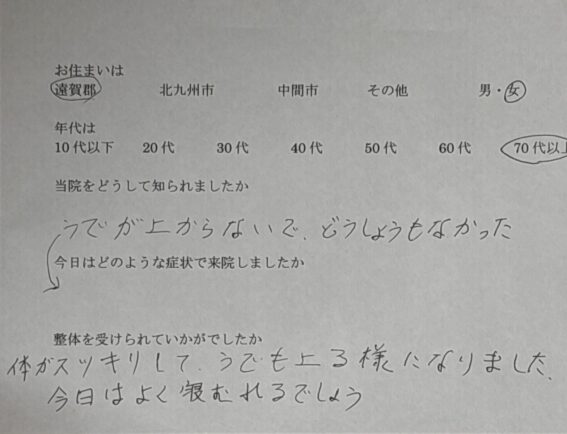 お住まいは
遠賀郡 北九州市 中間市 その他 男・女
年代は
10代以下 20代 30代 40代 50代 60代 70代以上
当院をどうして知られましたか
うでが上がらないで、どうしょうもなかった
今日はどのような症状で来院しましたか
整体を受けられていかがでしたか
体がスッキリして、うでも上る様になりました、
今日はよく寝むれるでしょう